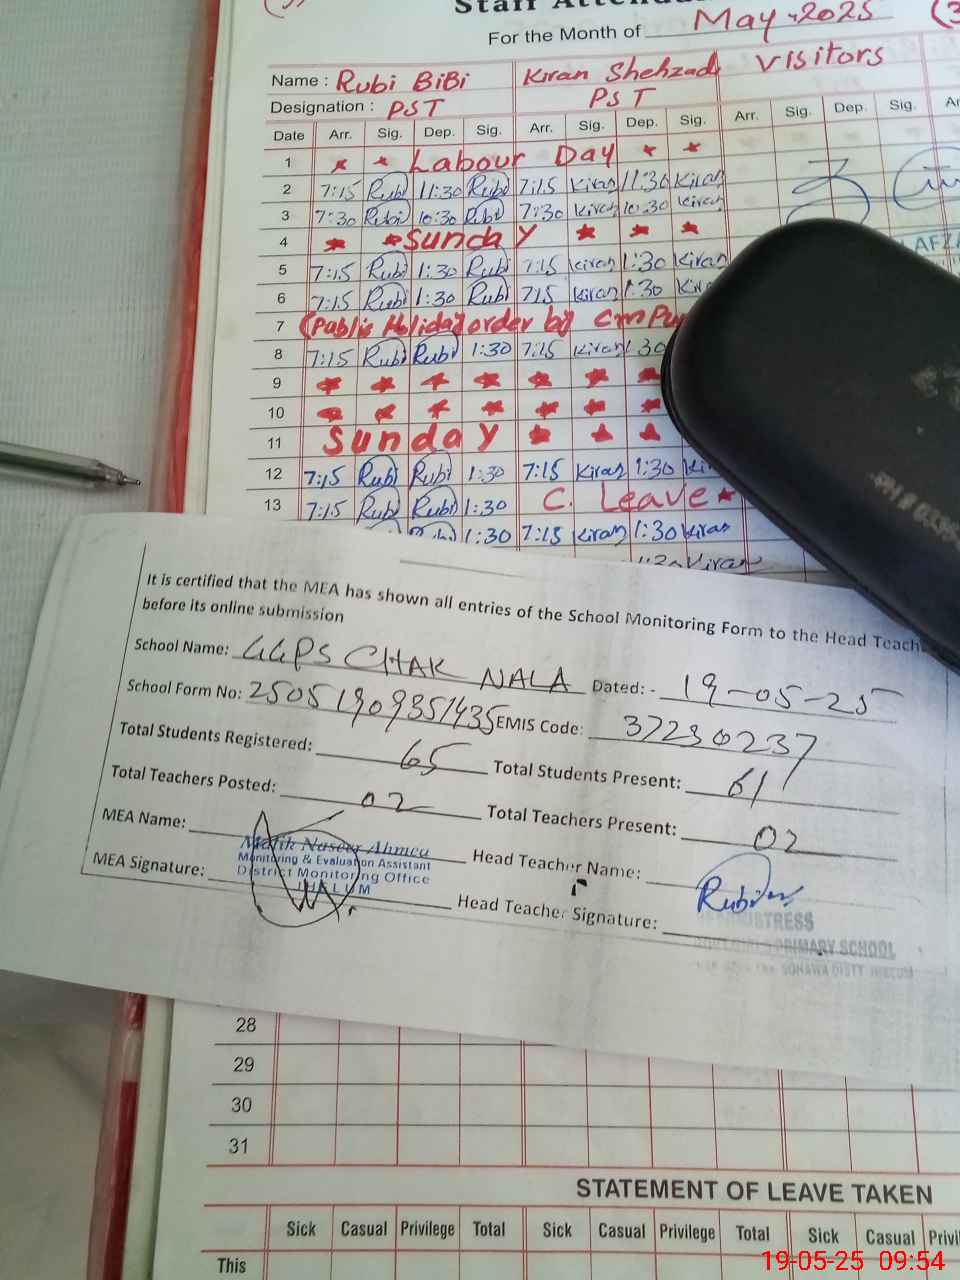 Staff Attenda
For the Month of May-2025
Name : Rubi BiBi Kiran Shehzadi Visitors
Designation : PST PST
Date Arr. Sig. Dep. Sig. Arr. Sig. Dep. Sig. Arr. Sig. Dep. Sig. Ar
1 Labour Day
2 7:15 Rubi 11:30 Rubi 7:15 Kiran 11:30 Kiran
3 7:30 Rubi 10:30 Rubi 7:30 Kiran 10:30 Kiran
4 Sunday
5 7:15 Rubi 1:30 Rubi 7:15 Kiran 1:30 Kiran
6 7:15 Rubi 1:30 Rubi 715 Kiran 1:30 Kiran
7 (Public Holiday order by Cm Pu
8 7:15 Rubi Rubi 1:30 7:15 Kiran 1:30
9
10
11 Sunday
12 7:15 Rubi Rubi 1:30 7:15 Kiran 1:30 Ki
13 7:15 Rubi Rubi 1:30 C. Leave
1:30 7:15 Kiran 1:30 Kiran
Kiran
It is certified that the MEA has shown all entries of the School Monitoring Form to the Head Teach
before its online submission
School Name: GGPS CHAK NALA Dated: - 19-05-25
School Form No: 25051909351435 EMIS Code: 37230237
Total Students Registered: 65 Total Students Present: 61
Total Teachers Posted: 02 Total Teachers Present: 02
MEA Name: Malik Naseer Ahmed Head Teacher Name:
Monitoring & Evaluation Assistant
District Monitoring Office
JHELUM
MEA Signature: Head Teacher Signature: Rubi
PRIMARY SCHOOL
28
29
30
31
STATEMENT OF LEAVE TAKEN
Sick Casual Privilege Total Sick Casual Privilege Total Sick Casual Privil
This
19-05-25 09:54